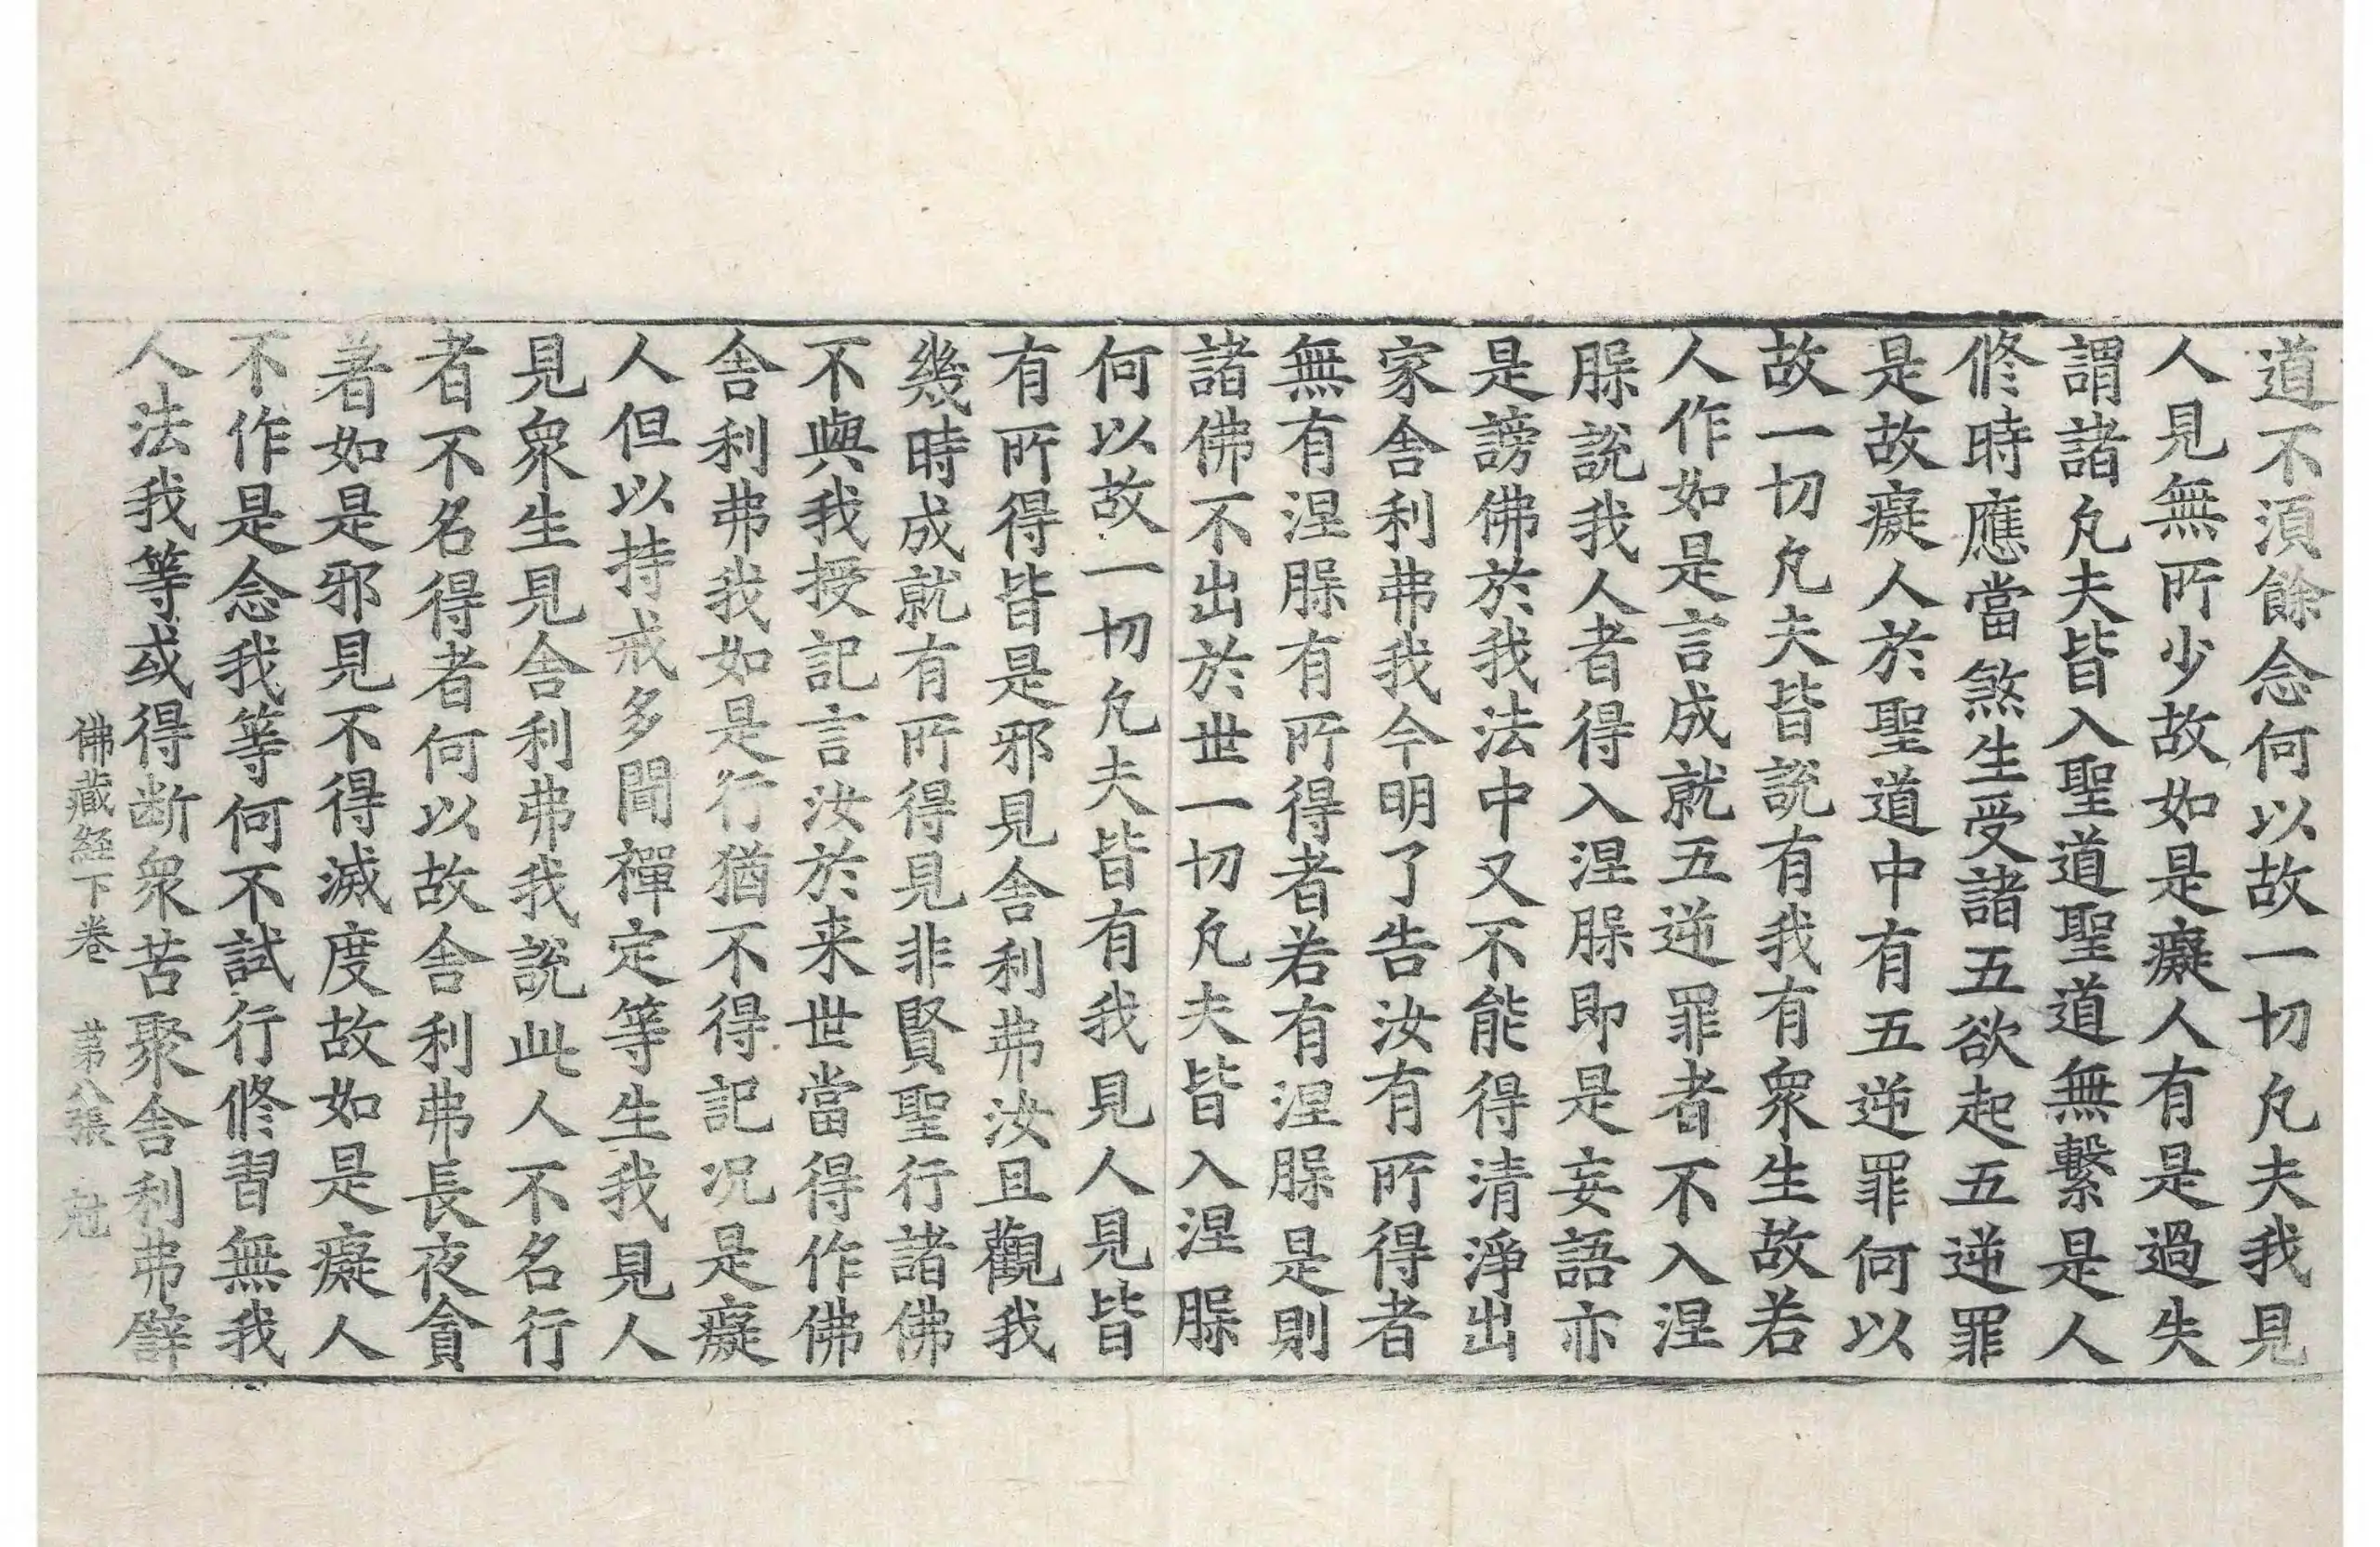 道不湏餘念何以故一切凢夫我見
人見無所少故如是癡人有是過失
謂諸凢夫皆入聖道聖道無繫是人
修時應當煞生受諸五欲起五逆罪
是故癡人於聖道中有五逆罪何以
故一切凢夫皆說有我有衆生故若
人作如是言成就五逆罪者不入涅
槃說我人者得入涅槃即是妄語亦
是謗佛於我法中又不能得清淨出
家舍利弗我今明了告汝有所得者
無有涅槃有所得者若有涅槃是則
諸佛不出於世一切凢夫皆入涅槃
何以故一切凢夫皆有我見人見皆
有所得皆是邪見舍利弗汝且觀我
幾時成就有所得見非賢聖行諸佛
不與我授記言汝於来世當得作佛
舍利弗我如是行猶不得記况是癡
人但以持戒多聞禪定等生我見人
見衆生見舍利弗我說此人不名行
者不名得者何以故舍利弗長夜貪
著如是邪見不得滅度故如是癡人
不作是念我等何不試行修習無我
人法我等或得断衆苦聚舍利弗譬
佛藏経下卷 苐八張 冠